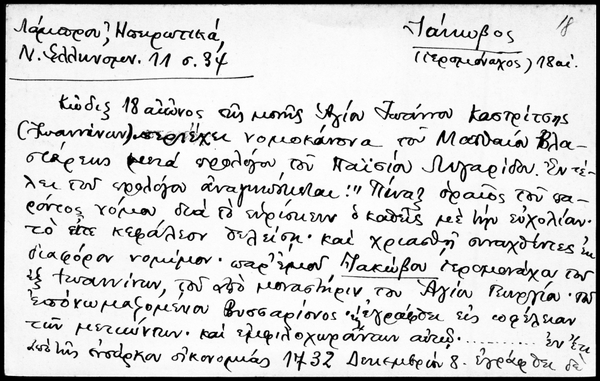 Λάμπρου, Ηπειρωτικά,
Ν. Ελληνομν. 11 σ. 34
18
Ἰάκωβος
(ἱερομόναχος) 18 αἰ.
Κώδιξ 18 αἰῶνος τῆς μονῆς Ἁγίου Ἰωάννου Καστρίτσης
(Ἰωαννίνων) περιέχει νομοκάνονα τοῦ Ματθαίου Βλα-
στάρεως μετά προλόγου τοῦ Παϊσίου Λιγαρίδου. Ἐν τέ-
λει τοῦ προλόγου ἀναγινώσκεται: "Πίναξ ὡραῖος τοῦ πα-
ρόντος νόμου διά τό εὑρίσκειν ὁ καθείς μέ τήν εὐχολίαν
τό κεφάλεον θελείση. καί χριασθῆ συναχθέντες ἐκ
διαφόρον νομίμον. παρ' ἐμοῦ Ἰακώβου ἱερομονάχου τοῦ
ἐξ Ἰωαννίνων, τοῦ ἀπό μοναστήριν τοῦ Ἁγίου Γεωργίου. τοῦ
ἐπονωμαζομένου Βησσαρίονος. ἐγράφθει εἰς ὀφέλειαν
τῶν μετιώντων. καί ἐμφιλοχωράντων αὐτῷ ......... ἐν ἔτι
ἀπό τῆς ἐνσάρκου οἰκονομίας 1732 Δεκεμβρίῳ 8. ἐγράφθει δέ